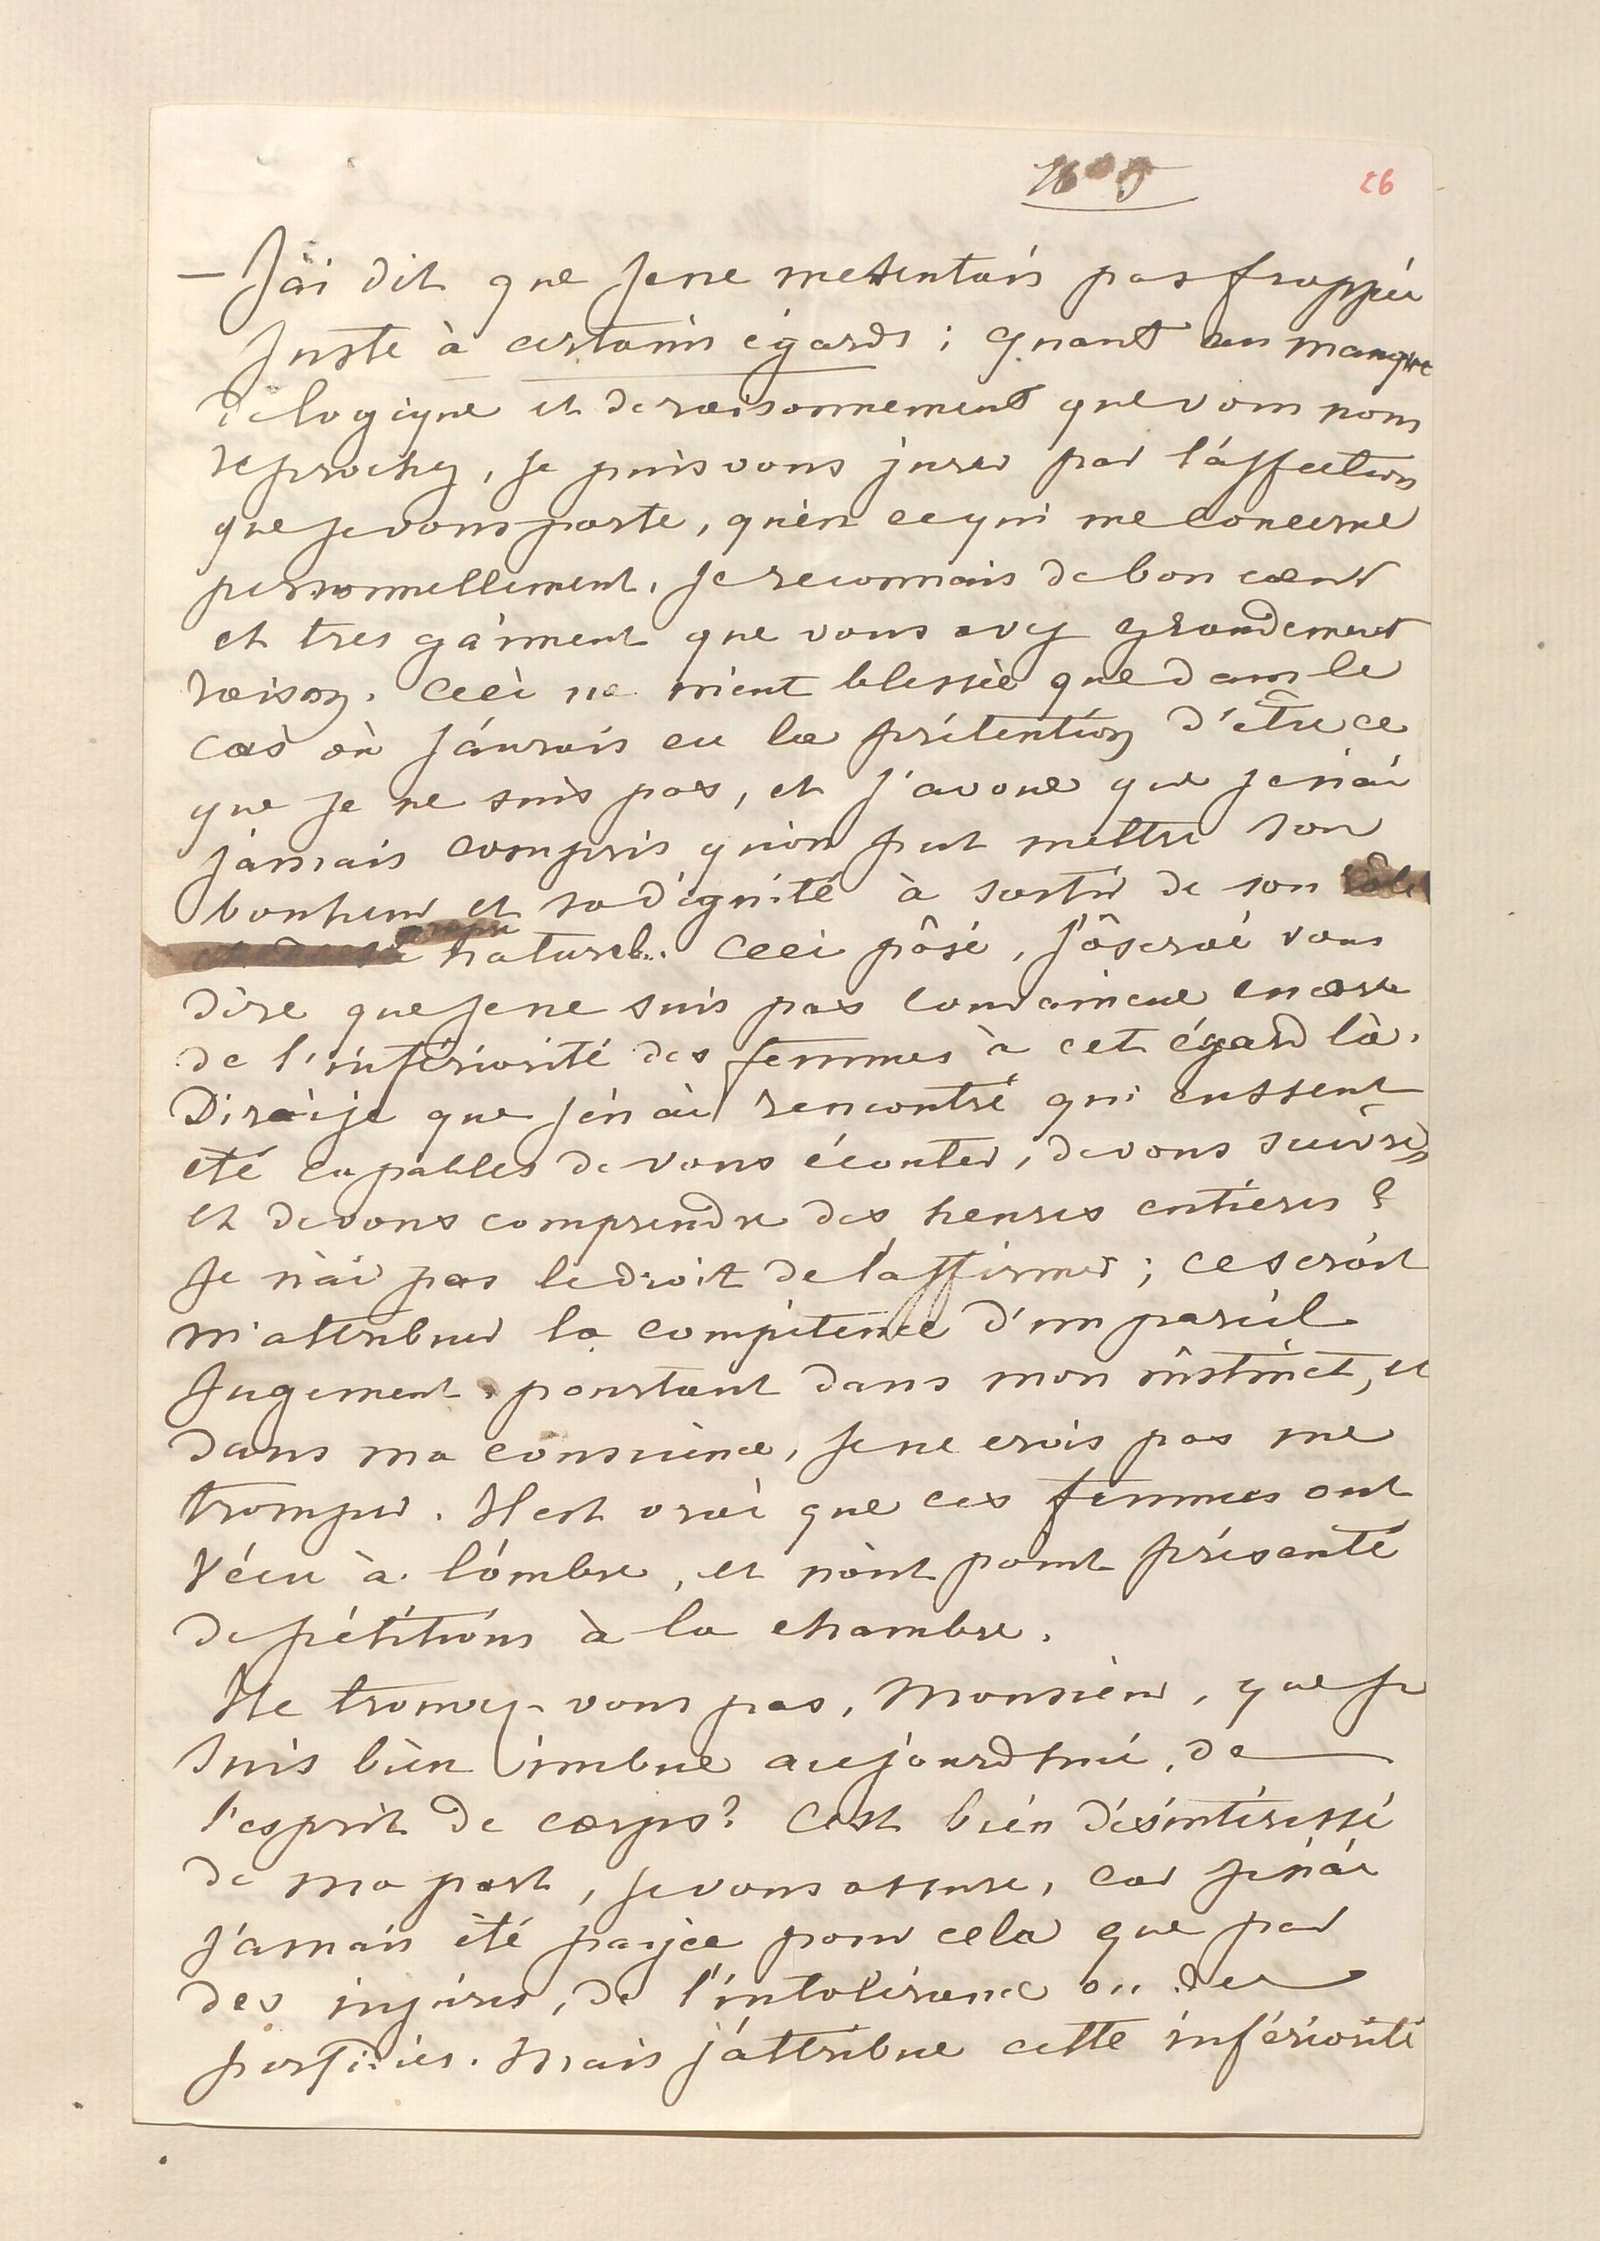 26
— J'ai dit que je ne me sentais pas frappée
juste à certains égards ; quant au manque
de logique et de raisonnement que vous nous
reprochez, je puis vous jurer par l'affection
que je vous porte, qu'en ce qui me concerne
personnellement, je reconnais de bon cœur
et tres gaiment que vous avez grandement
raison. Ceci ne m'eut blessée que dans le
cas où j'aurais eu la prétention d'être ce
que je ne suis pas, et j'avoue que je n'ai
jamais compris qu'on put mettre son
bonheur et sa dignité à sortir de son
naturel. Ceci posé, j'oserai vous
dire que je ne suis pas convaincue encore
de l'infériorité des femmes à cet égard là.
Dirai je que j'en ai rencontré qui eussent
été capables de vous écouter, de vous suivre,
et de vous comprendre des heures entieres ?
Je n'ai pas le droit de l'affirmer ; ce serait
m'attribuer la compétence d'un pareil
jugement, pourtant dans mon instinct, et
dans ma conscience, je ne crois pas me
tromper. Il est vrai que ces femmes ont
vécu à l'ombre, et n'ont point présenté
de pétitions à la chambre.
Ne trouvez-vous pas, Monsieur, que je
suis bien imbue aujourd'hui, de
l'esprit de corps ? C'est bien désintéressé
de ma part, je vous assure, car je n'ai
jamais été payée pour cela que par
des injures, de l'intolérance ou des
perfidies. Mais j'attribue cette infériorité